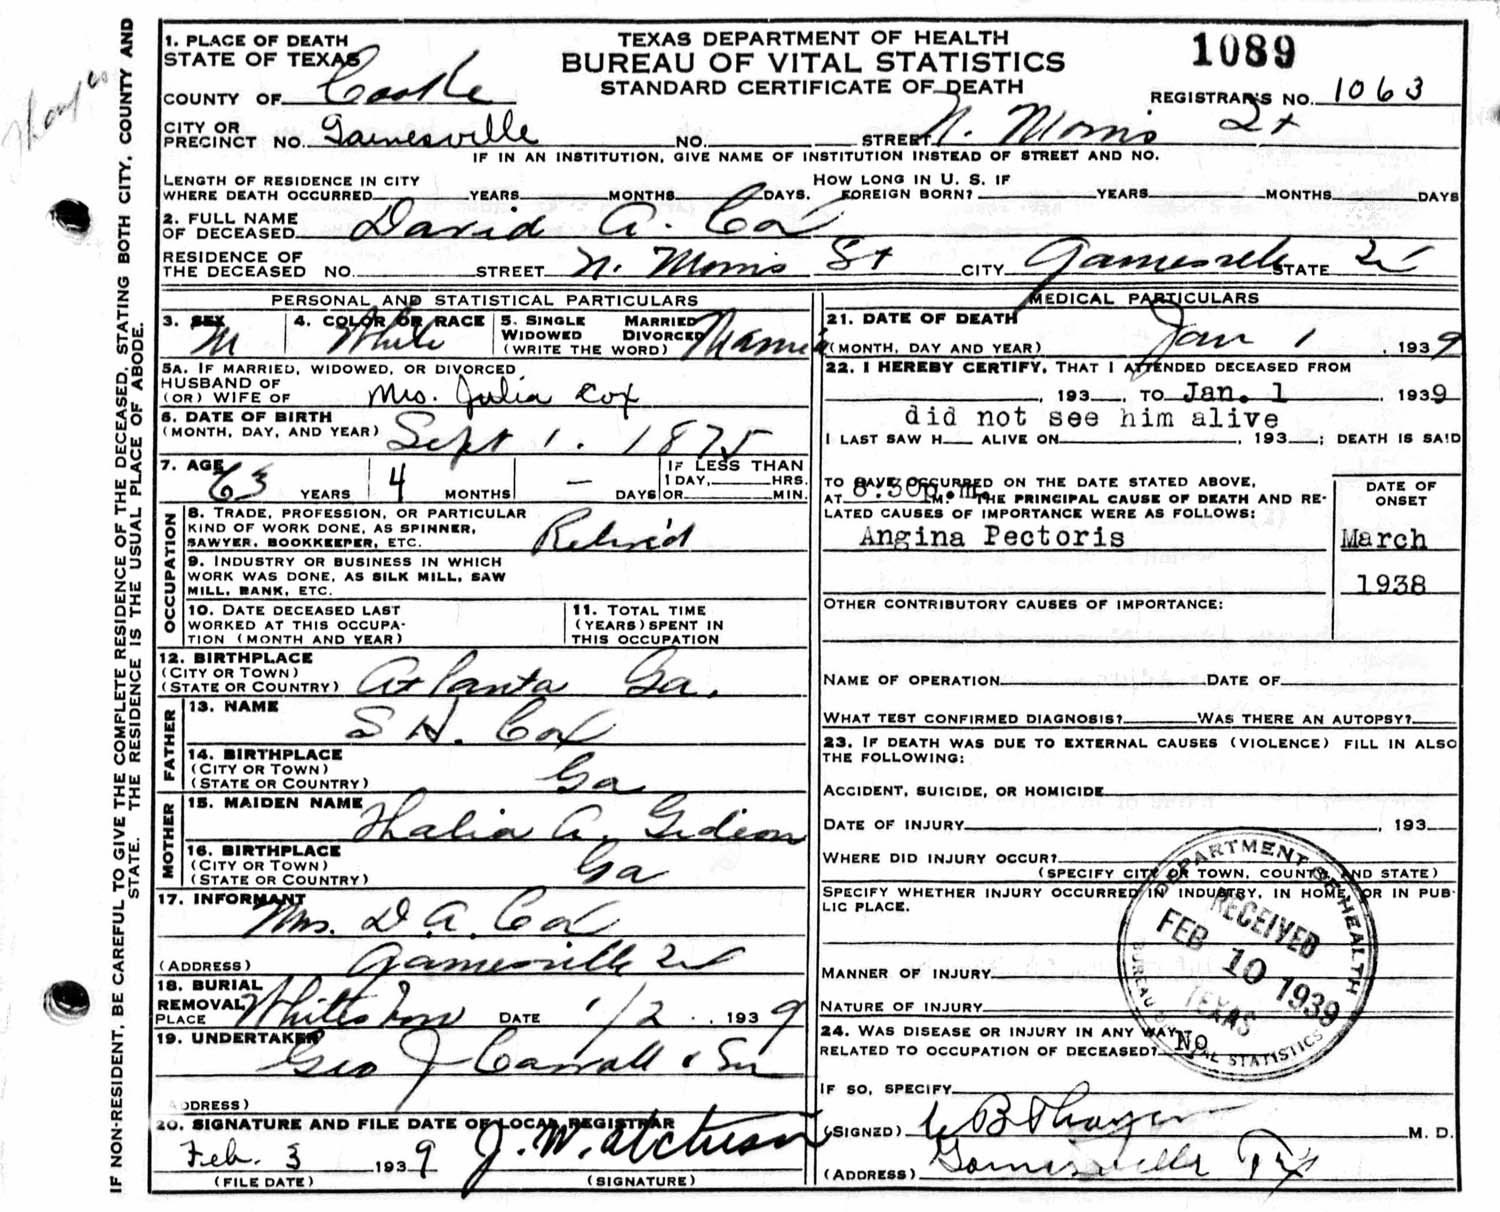 1. PLACE OF DEATH
STATE OF TEXAS
TEXAS DEPARTMENT OF HEALTH
BUREAU OF VITAL STATISTICS
STANDARD CERTIFICATE OF DEATH
1089
COUNTY OF Cooke
REGISTRAR'S NO. 1063
CITY OR
PRECINCT NO. Gainesville NO. STREET N. Morris St
IF IN AN INSTITUTION, GIVE NAME OF INSTITUTION INSTEAD OF STREET AND NO.
LENGTH OF RESIDENCE IN CITY
WHERE DEATH OCCURRED YEARS MONTHS DAYS.
HOW LONG IN U. S. IF
FOREIGN BORN? YEARS MONTHS DAYS
2. FULL NAME
OF DECEASED David A. Cox
RESIDENCE OF
THE DECEASED NO. STREET N. Morris St CITY Gainesville STATE
PERSONAL AND STATISTICAL PARTICULARS
3. SEX M
4. COLOR OR RACE White
5. SINGLE MARRIED
WIDOWED DIVORCED
(WRITE THE WORD) Married
5A. IF MARRIED, WIDOWED, OR DIVORCED
HUSBAND OF
(OR) WIFE OF Mrs. Julia Cox
6. DATE OF BIRTH
(MONTH, DAY, AND YEAR) Sept 1. 1875
7. AGE 63 YEARS 4 MONTHS – DAYS
IF LESS THAN
1 DAY, HRS.
OR MIN.
OCCUPATION
8. TRADE, PROFESSION, OR PARTICULAR
KIND OF WORK DONE, AS SPINNER,
SAWYER, BOOKKEEPER, ETC. Retired
9. INDUSTRY OR BUSINESS IN WHICH
WORK WAS DONE, AS SILK MILL, SAW
MILL, BANK, ETC.
10. DATE DECEASED LAST
WORKED AT THIS OCCUPA-
TION (MONTH AND YEAR)
11. TOTAL TIME
(YEARS) SPENT IN
THIS OCCUPATION
12. BIRTHPLACE
(CITY OR TOWN)
(STATE OR COUNTRY) Atlanta Ga.
FATHER
13. NAME S H. Cox
14. BIRTHPLACE
(CITY OR TOWN)
(STATE OR COUNTRY) Ga
MOTHER
15. MAIDEN NAME Thalia A. Gideon
16. BIRTHPLACE
(CITY OR TOWN)
(STATE OR COUNTRY) Ga
17. INFORMANT Mrs. D. A. Cox
(ADDRESS) Gainesville
18. BURIAL
REMOVAL
PLACE Whitesboro DATE 1/2 1939
19. UNDERTAKER Geo J Carroll & Son
ADDRESS)
20. SIGNATURE AND FILE DATE OF LOCAL REGISTRAR
Feb. 3 1939 J. W. Atchison
(FILE DATE) (SIGNATURE)
MEDICAL PARTICULARS
21. DATE OF DEATH
(MONTH, DAY AND YEAR) Jan 1 , 1939
22. I HEREBY CERTIFY, THAT I ATTENDED DECEASED FROM
, 193 , TO Jan. 1 1939
did not see him alive
I LAST SAW H ALIVE ON , 193 ; DEATH IS SAID
TO HAVE OCCURRED ON THE DATE STATED ABOVE,
AT 8:30p.m. M. THE PRINCIPAL CAUSE OF DEATH AND RE-
LATED CAUSES OF IMPORTANCE WERE AS FOLLOWS:
DATE OF
ONSET
Angina Pectoris March
1938
OTHER CONTRIBUTORY CAUSES OF IMPORTANCE:
NAME OF OPERATION DATE OF
WHAT TEST CONFIRMED DIAGNOSIS? WAS THERE AN AUTOPSY?
23. IF DEATH WAS DUE TO EXTERNAL CAUSES (VIOLENCE) FILL IN ALSO
THE FOLLOWING:
ACCIDENT, SUICIDE, OR HOMICIDE
DATE OF INJURY , 193
WHERE DID INJURY OCCUR?
(SPECIFY CITY OR TOWN, COUNTY AND STATE)
SPECIFY WHETHER INJURY OCCURRED IN INDUSTRY, IN HOME, OR IN PUB-
LIC PLACE.
MANNER OF INJURY
NATURE OF INJURY
24. WAS DISEASE OR INJURY IN ANY WAY
RELATED TO OCCUPATION OF DECEASED? No
IF SO, SPECIFY
(SIGNED) C B Thayer M. D.
(ADDRESS) Gainesville Tex
DEPARTMENT OF HEALTH
RECEIVED
FEB 10 1939
TEXAS
BUREAU OF VITAL STATISTICS
IF NON-RESIDENT, BE CAREFUL TO GIVE THE COMPLETE RESIDENCE OF THE DECEASED, STATING BOTH CITY, COUNTY AND
STATE. THE RESIDENCE IS THE USUAL PLACE OF ABODE.